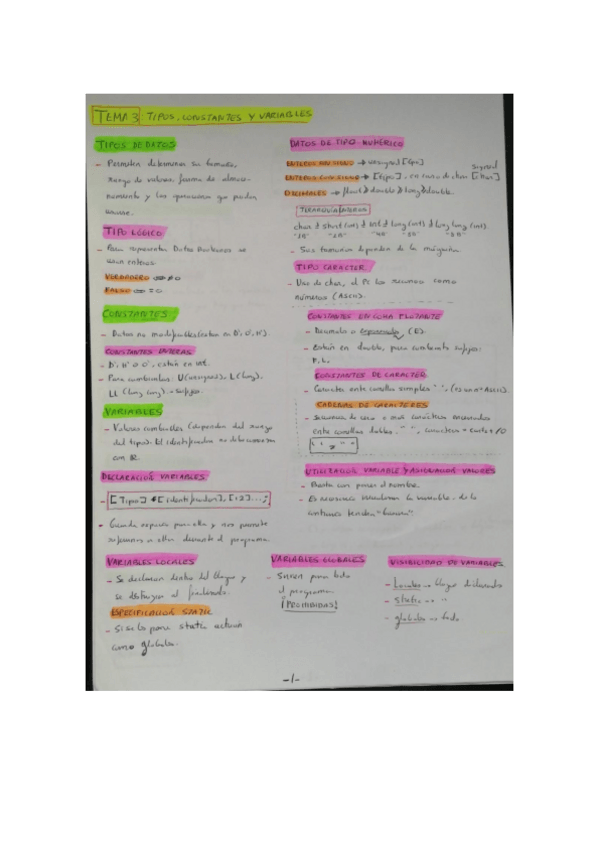 TEMA 3: TIPOS, CONSTANTES Y VARIABLES
TIPOS DE DATOS
- Permiten determinar su tamaño,
rango de valores, forma de almace-
namiento y las operaciones que pueden
TIPO LÓGICO
- Para representar Datos Booleanos se
usan enteros.
VERDADERO ⇔ ≠0
FALSO ⇔ =0
CONSTANTES
- Datos no modificables (enteros en D', O', H').
CONSTANTES ENTERAS
- D', H' o O', están en int.
- Para cambiarlas: U (unsigned), L (long),
LL (long long). = Sufijos.
VARIABLES
- Valores cambiables (dependen del rango
del tipo). El identificador no debe comenzar
con
DECLARACIÓN VARIABLES
- [Tipo] [identificador], [2]...;
- Guarda espacio para ella y nos permite
referirnos a ella durante el programa.
VARIABLES LOCALES
- Se declaran dentro del bloque y
se destruyen al finalizarlo.
ESPECIFICACIÓN STATIC
- Si se la pone static actuará
como globales.
DATOS DE TIPO NUMÉRICO
ENTEROS SIN SIGNO → unsigned [tipo]
ENTEROS CON SIGNO → [tipo], en caso de char signed [char]
DECIMALES → float ≥ double ≥ long double.
char ≥ short (int) ≥ int ≥ long (int) ≥ long long (int)
- Sus tamaños dependen de la máquina
TIPO CARACTER
- Uso de char, el PC los reconoce como
números (ASCII).
CONSTANTES EN COMA FLOTANTE
- Decimales o exponencial (E).
- Están en double, para cambiarlo sufijos:
F, L.
CONSTANTES DE CARACTER
- Caracter entre comillas simples ' ', (es un nº ASCII).
CADENAS DE CARACTERES
- Secuencia de cero o más caracteres encerrados
entre comillas dobles. " ",
UTILIZACIÓN VARIABLE Y ASIGNACIÓN VALORES
- Basta con poner el nombre.
- Es necesario inicializar la variable, de lo
contrario tendrá "basura".
VARIABLES GLOBALES
- Sirven para todo
el programa
¡PROHIBIDAS!
VISIBILIDAD DE VARIABLES
- Locales → bloque declarado
- static → " "
- globales → todo
-1-